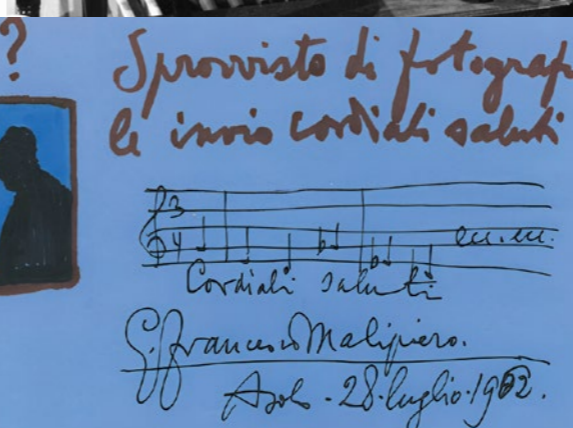 ?
Sprovvisto di fotograf
le invio cordiali saluti
3
4
ecc. ecc.
Cordiali saluti
G. Francesco Malipiero.
Asolo - 28. luglio. 1962.